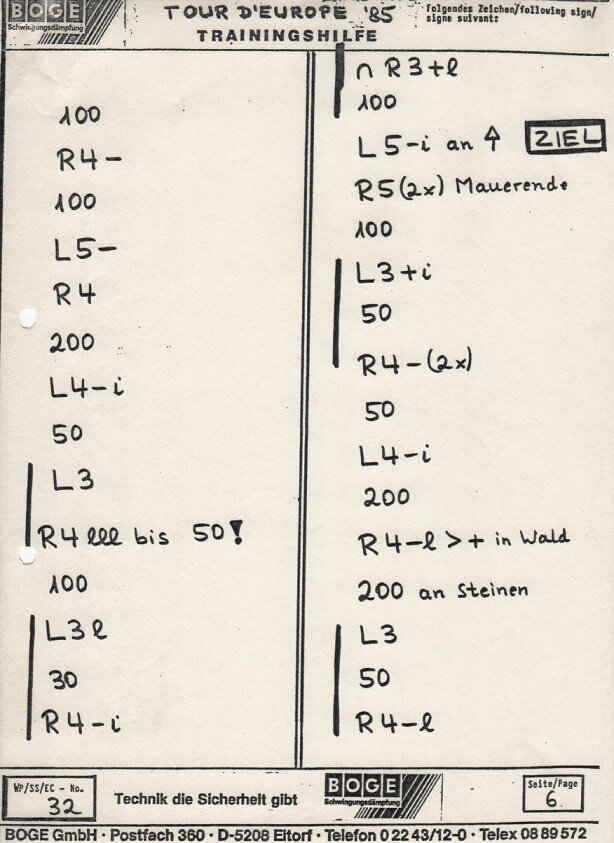 BOGE
Schwingungsdämpfung
TOUR D'EUROPE '85
TRAININGSHILFE
Folgendes Zeichen/following sign/
signe suivant:
100
R4-
100
L5-
R4
200
L4-i
50
L3
R4 lll bis 50!
100
L3l
30
R4-i
∩ R3+l
100
L5-i an ↑ ZIEL
R5(2x) Mauerende
100
L3+i
50
R4-(2x)
50
L4-i
200
R4-l>+ in Wald
200 an Steinen
L3
50
R4-l
WP/SS/EC - No.
32
Technik die Sicherheit gibt
BOGE
Schwingungsdämpfung
Seite/Page
6
BOGE GmbH · Postfach 360 · D-5208 Eitorf · Telefon 0 22 43/12-0 · Telex 08 89 572